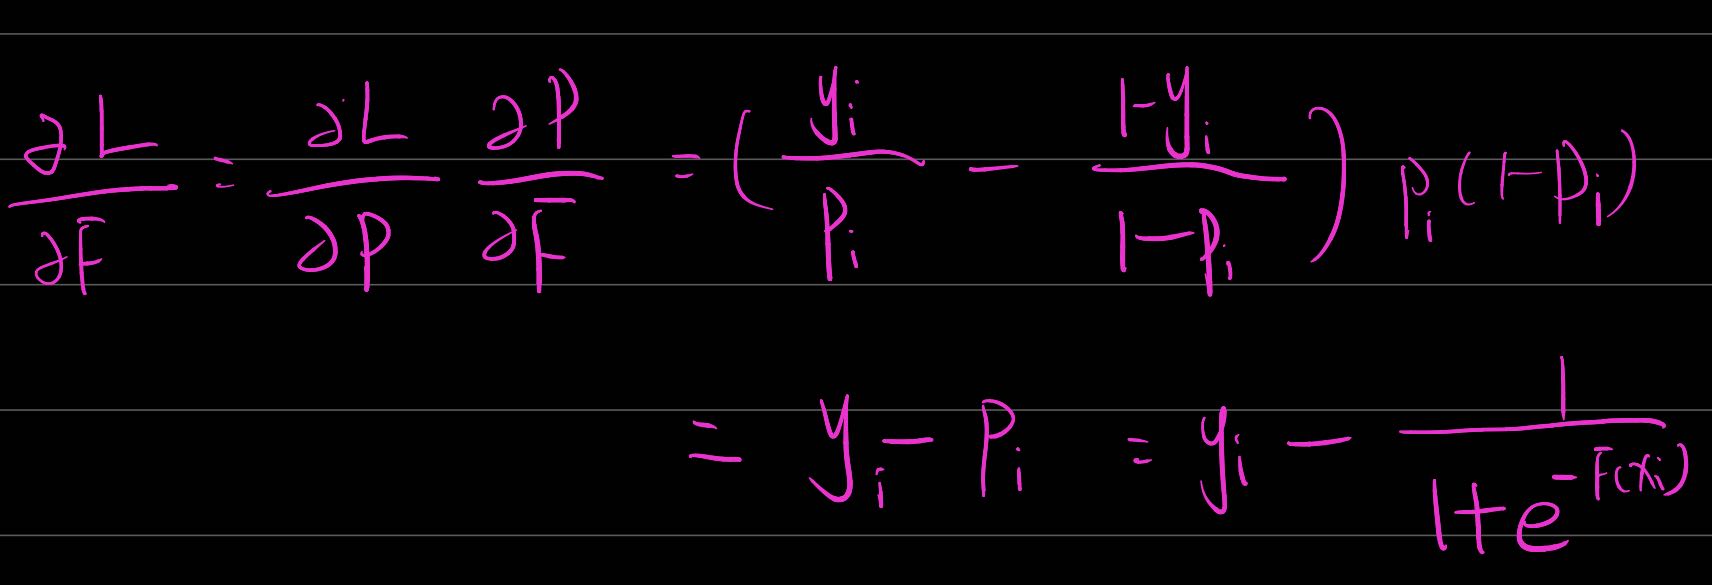 ∂L/∂F = ∂L/∂P ∂P/∂F = (yᵢ/pᵢ − (1−yᵢ)/(1−pᵢ)) pᵢ(1−pᵢ)
= yᵢ − pᵢ = yᵢ − 1/(1+e^(−F(xᵢ)))